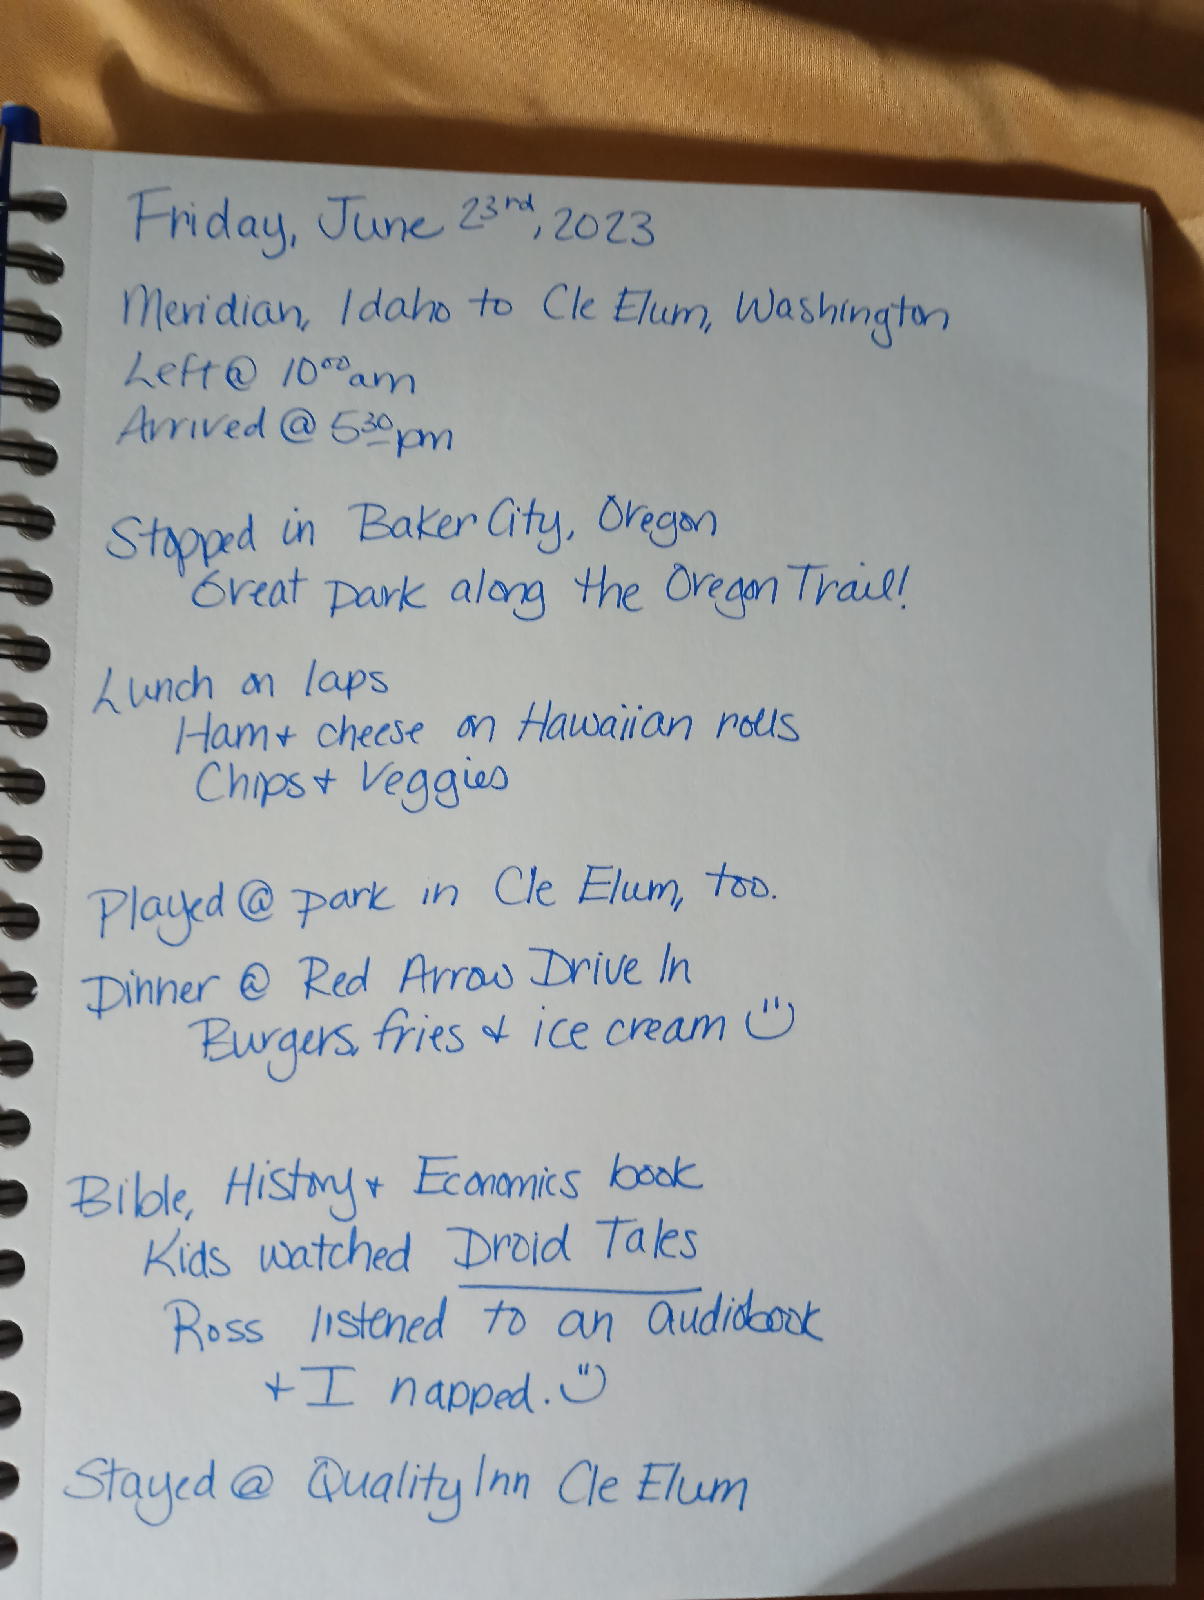 Friday, June 23rd, 2023
Meridian, Idaho to Cle Elum, Washington
Left @ 10⁰⁰am
Arrived @ 5³⁰pm
Stopped in Baker City, Oregon
Great park along the Oregon Trail!
Lunch on laps
Ham + cheese on Hawaiian rolls
Chips + Veggies
Played @ park in Cle Elum, too.
Dinner @ Red Arrow Drive In
Burgers, fries + ice cream
Bible, History + Economics book
Kids watched Droid Tales
Ross listened to an audiobook
+ I napped.
Stayed @ Quality Inn Cle Elum